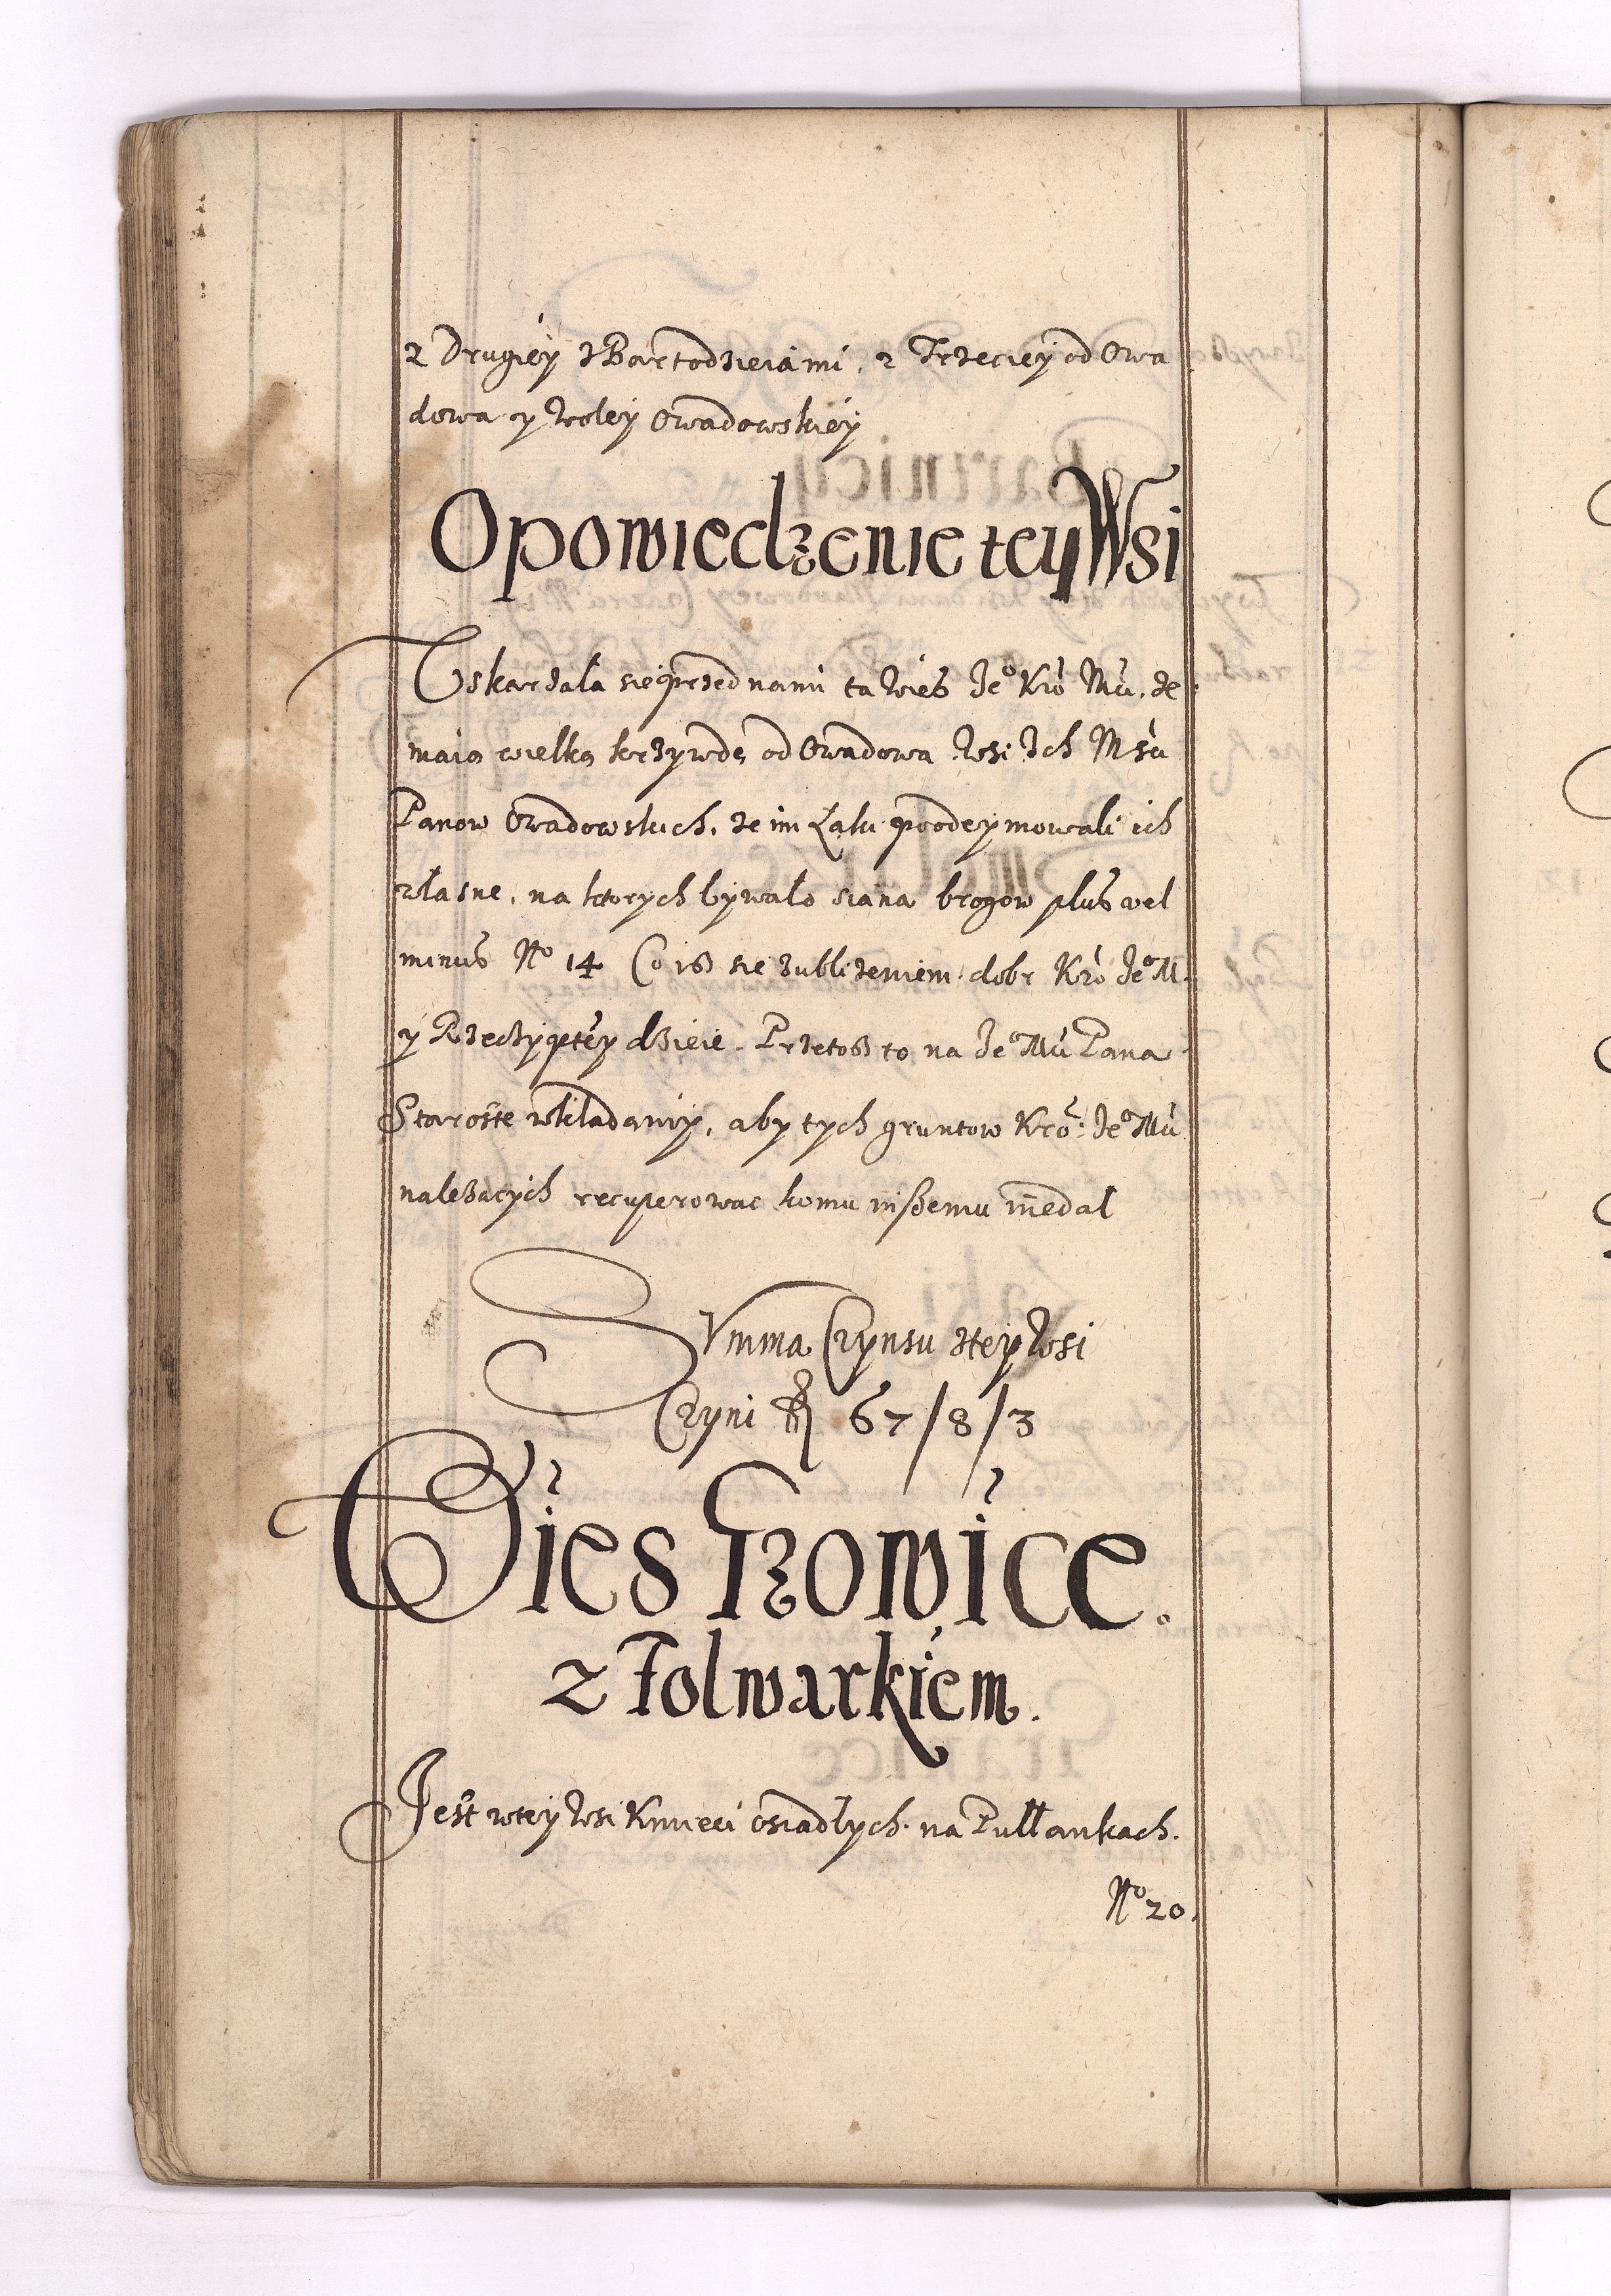 z Drugiéy z Bartodzieiámi, z Trzeciey od Owa
dowa y Woley Owadowskiéy
Opowiedzenie tey Wsi
Uskarzała sie przed nami ta Wies Je⁰ Kró Mći, ze
maią wielką krzywdę od Owadowa Wsi Ich Mśći
Panow Owadowskich, ze im Łaki poodeymowali ich
własne, na ktorych bywało siana brogow plus vel
minus N⁰ 14 Co iß sie z ubliżeniem dobr Kró Je⁰ M.
y Rzeczypptéy dzieie. Przetoß to na Je⁰ Mći Pana
Staroste wkladamy, aby tych gruntow Kró: Je⁰ Mći
należących recuperowac komu inßemu niedał
Summa Czynsu z tey Wsi
Czyni fl 67/8/3
Wies Lzowice.
z Folwarkiem.
Jest w tey Wsi Kmieci osiadłych na Pułłankach.
N⁰ 20.